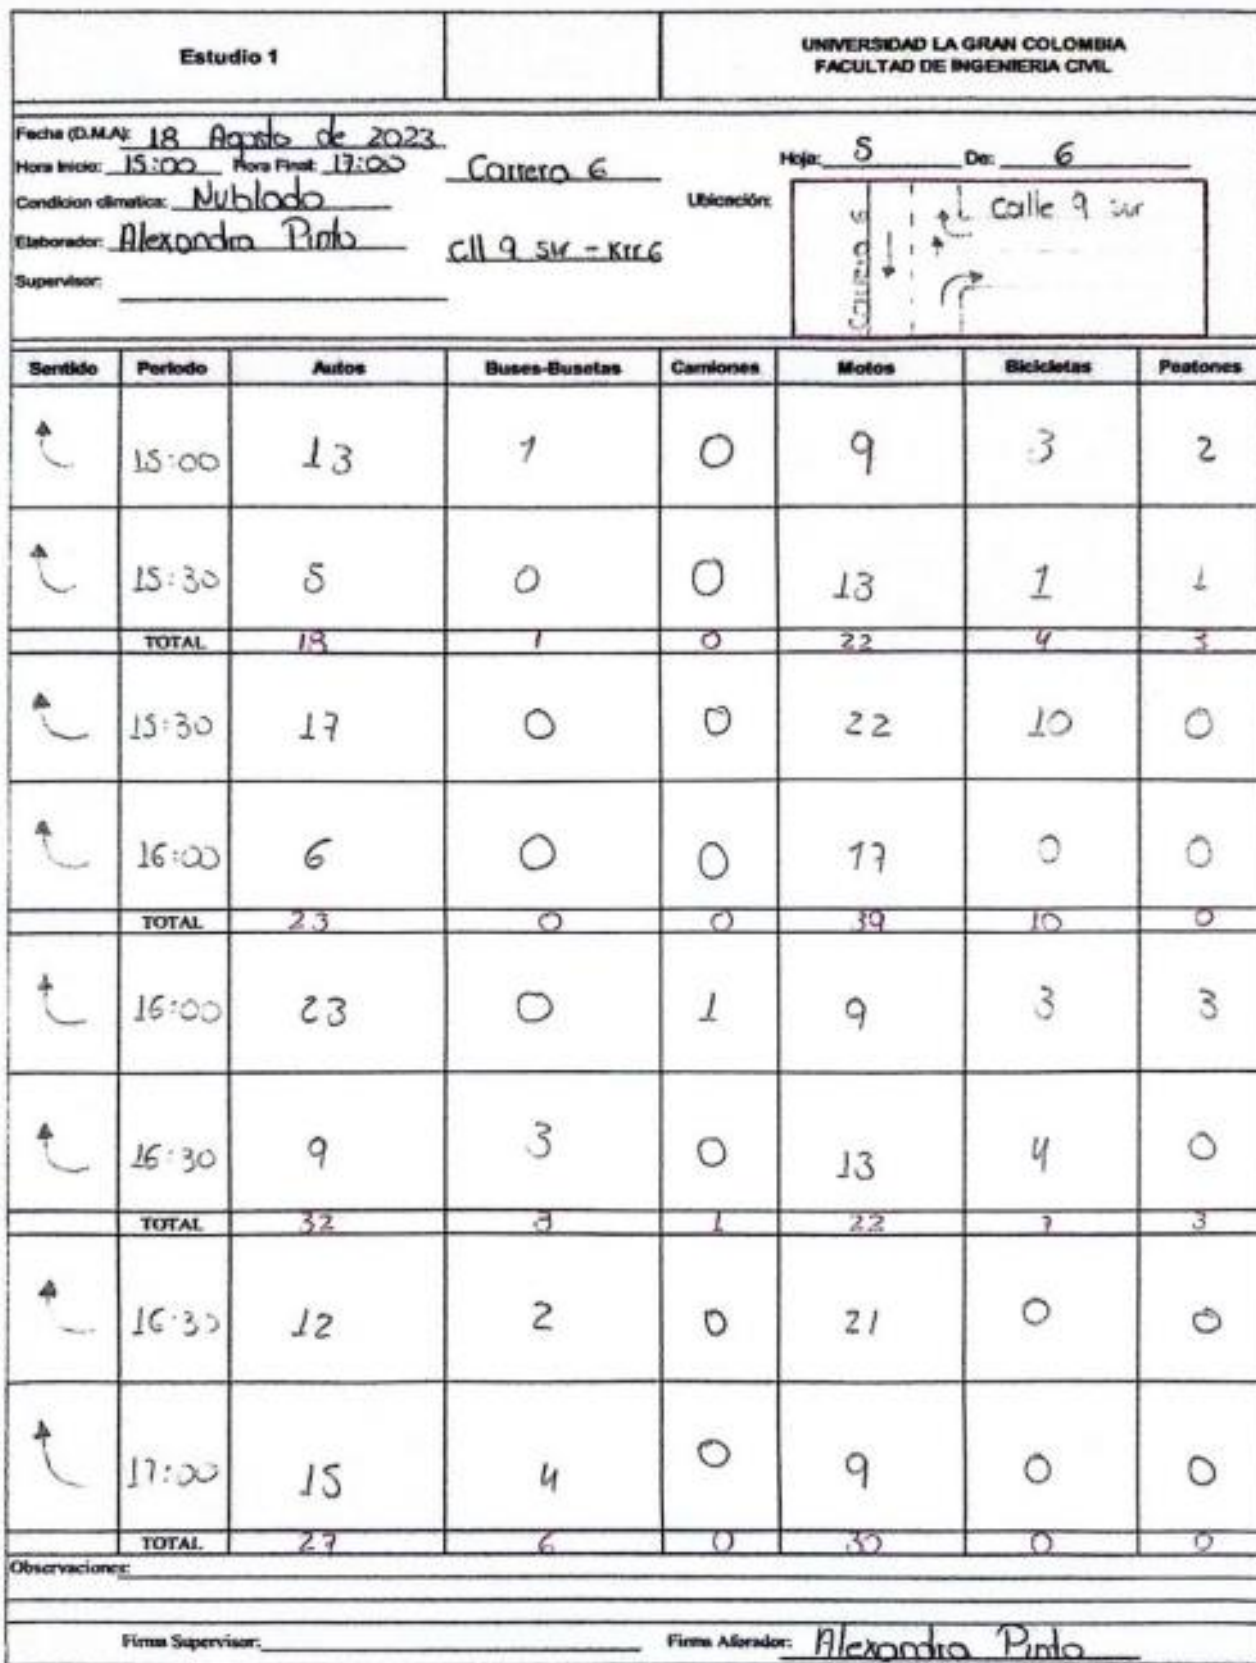 Estudio 1
UNIVERSIDAD LA GRAN COLOMBIA
FACULTAD DE INGENIERIA CIVIL
Fecha (D.M.A): 18 Agosto de 2023
Hora Inicio: 15:00 Hora Final: 17:00 Carrera 6 Hoja: 5 De: 6
Condicion climatica: Nublado Ubicación:
Elaborador: Alexandra Pinto Cll 9 sur - Krr 6
Supervisor:
Calle 9 sur
Carrera 6
Sentido Periodo Autos Buses-Busetas Camiones Motos Bicicletas Peatones
15:00 13 1 0 9 3 2
15:30 5 0 0 13 1 1
TOTAL 18 1 0 22 4 3
15:30 17 0 0 22 10 0
16:00 6 0 0 17 0 0
TOTAL 23 0 0 39 10 0
16:00 23 0 1 9 3 3
16:30 9 3 0 13 4 0
TOTAL 32 3 1 22 7 3
16:30 12 2 0 21 0 0
17:00 15 4 0 9 0 0
TOTAL 27 6 0 30 0 0
Observaciones:
Firma Supervisor: Firma Aforador: Alexandra Pinto